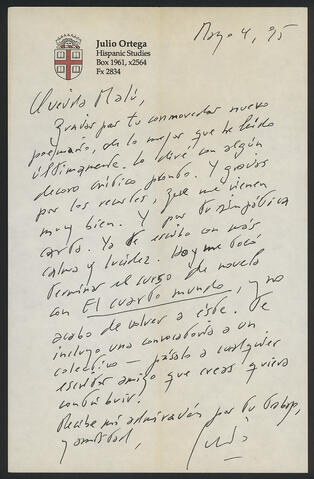 Julio Ortega
Hispanic Studies
Box 1961, x2564
Fx 2834
Mayo 4, 95
Querida Malú,
Gracias por tu conmovedor nuevo
poemario, de lo mejor que he leído
últimamente. Lo diré con algún
decoro crítico pronto. Y gracias
por los recortes, que me vienen
muy bien. Y por tu simpática
carta. Ya te escribo con más
calma y lucidez. Hoy me tocó
terminar el curso de novela
con El cuarto mundo, y no
acabo de volver a éste. Te
incluyo una convocatoria a un
colectivo — pásalo a cualquier
escritor amigo que creas quiera
contribuir.
Recibe mi admiración por tu trabajo,
y amistad,
Julio